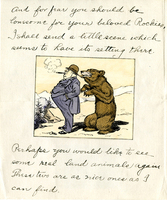 And for fear you should be
lonesome for your beloved Rockies,
I shall send a little scene which
seems to have its setting there
Perhaps you would like to see
some real land animals again
These two are as nice ones as I
can find.